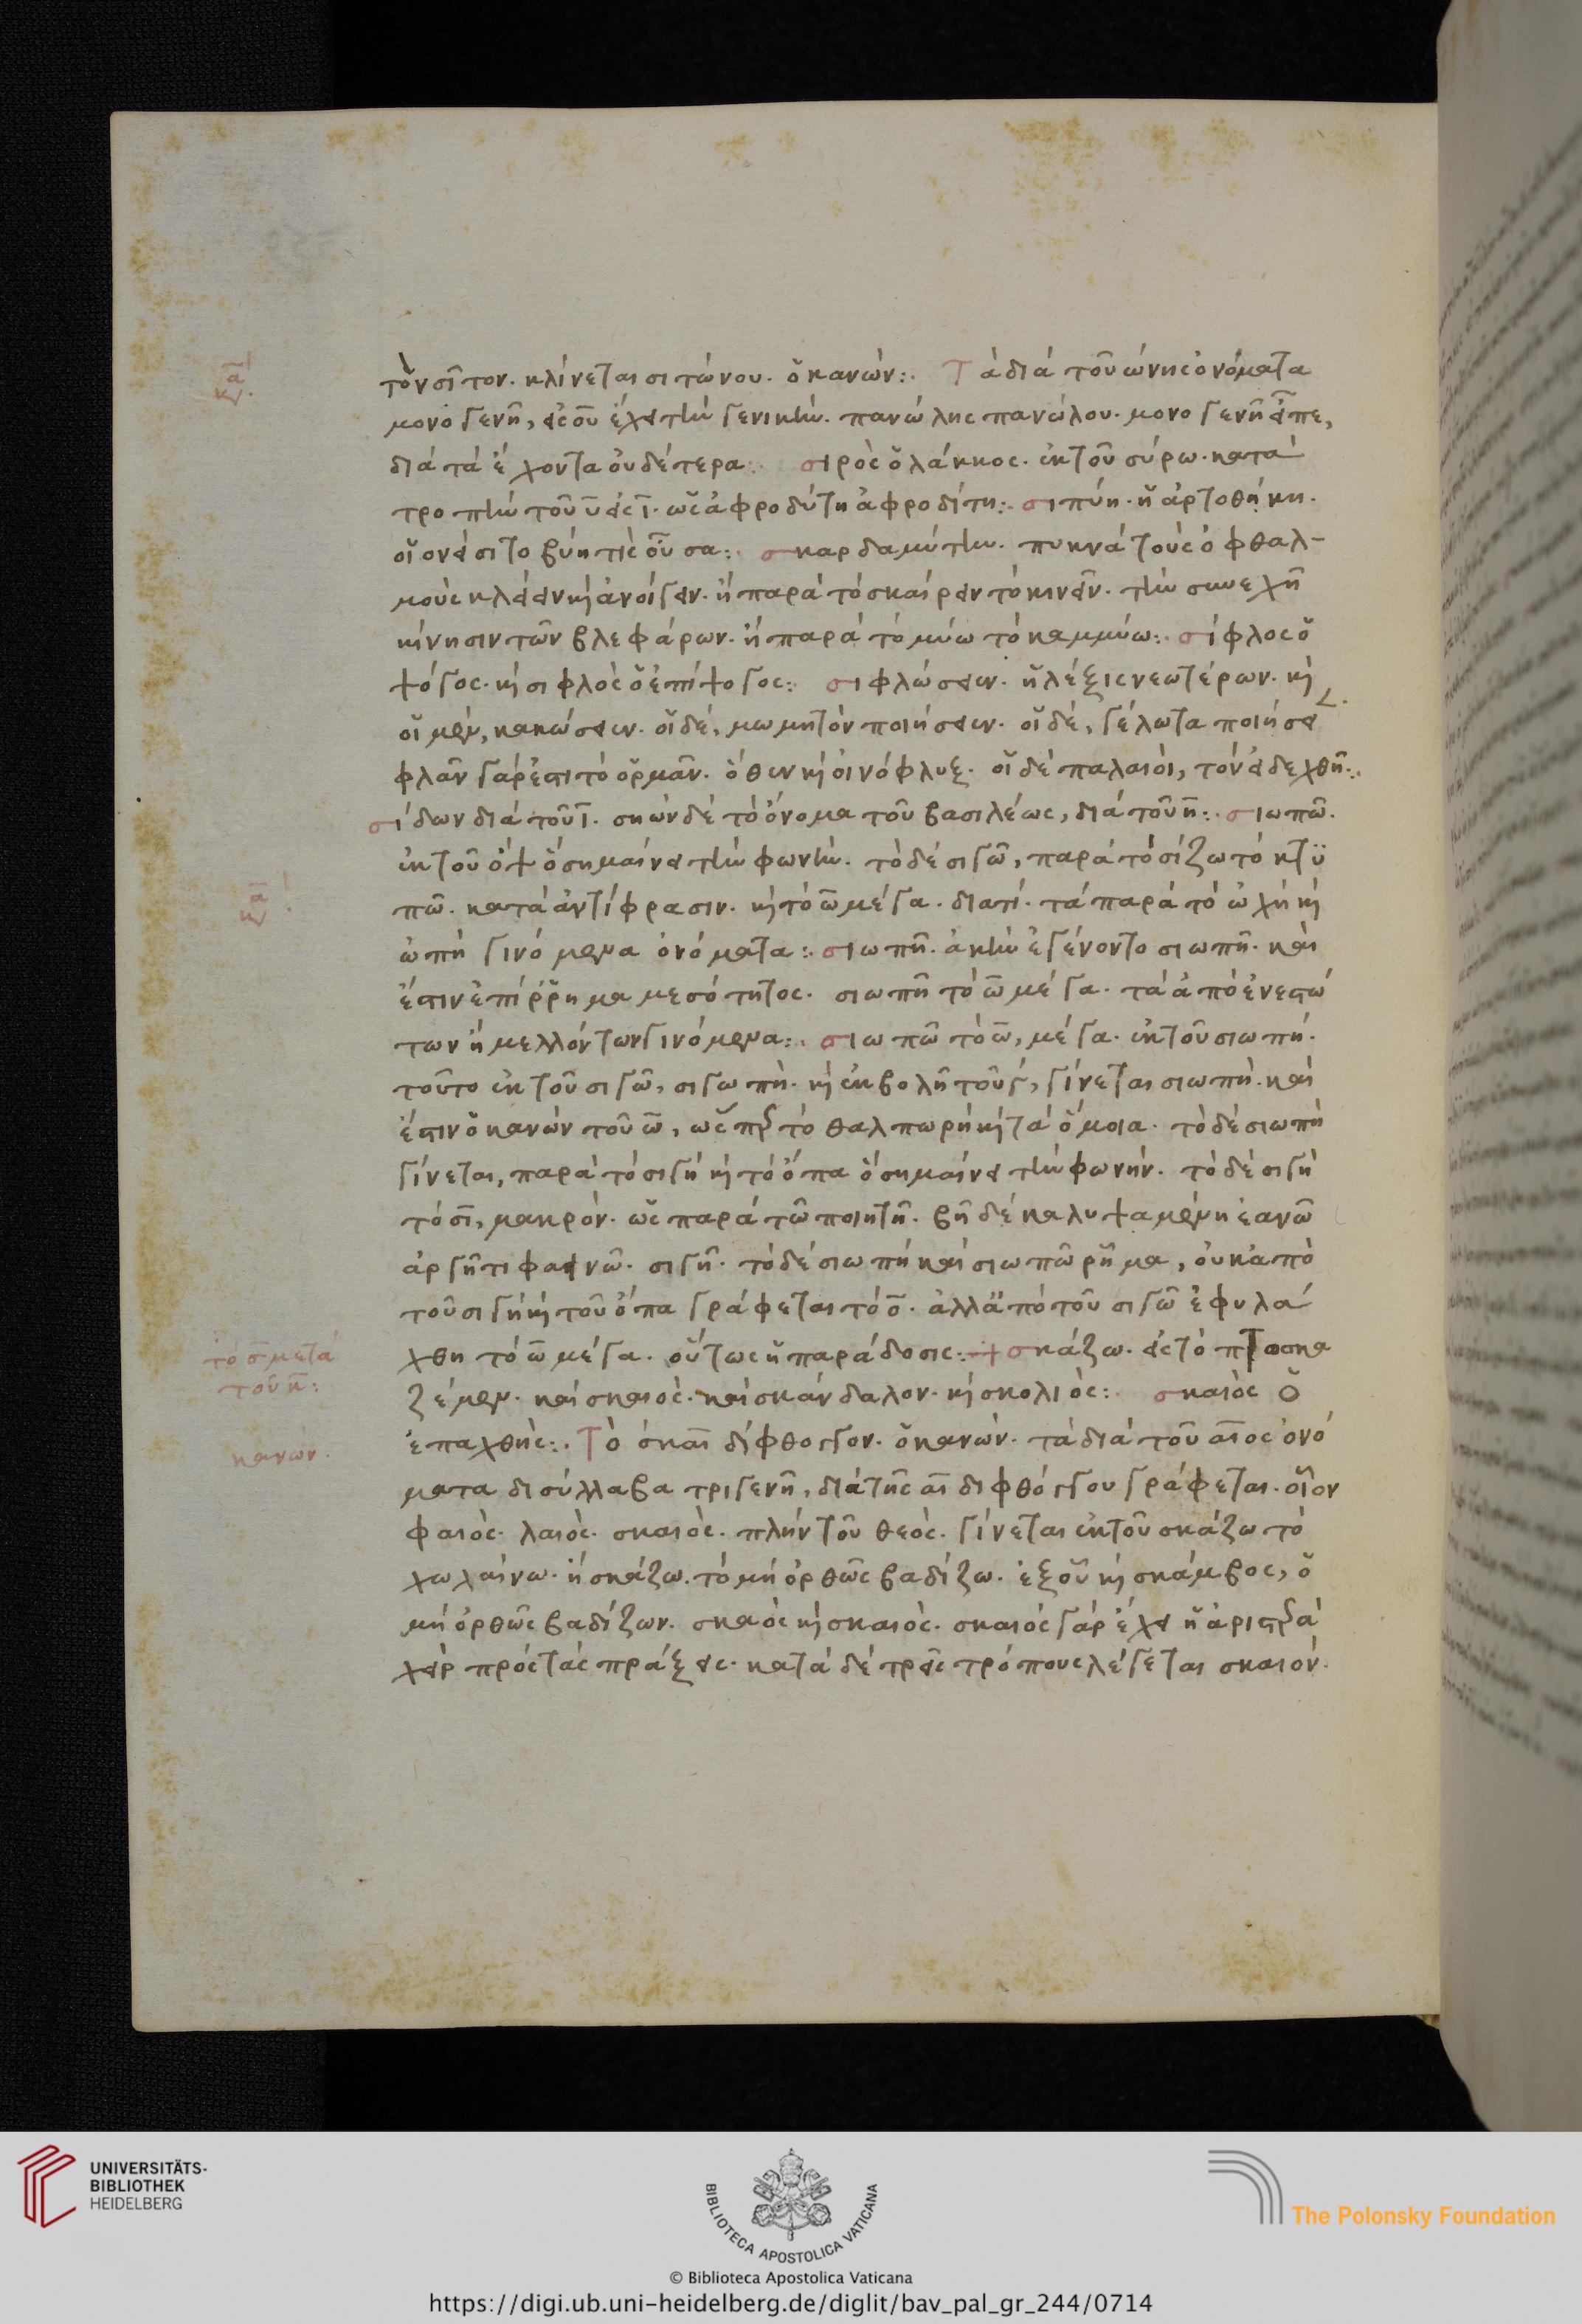 τὸν σῖτον. κλίνεται σιτώνου. ὁ κανών:. Τὰ διὰ τοῦ ώνης ὀνόματα
μονογενῆ, εἰς ου ἔχει τὴν γενικήν. πανώλης πανώλου. μονογενῆ εἶπε,
διὰ τὰ ἔχοντα οὐδέτερα:. σιρὸς ὁ λάκκος. ἐκ τοῦ σύρω. κατὰ
τροπὴν τοῦ υ εἰς ι. ὡς ἀφροδύτη ἀφροδίτη:. σιπύη. ἡ ἀρτοθήκη.
οἱονεὶ σιτοβύη τὶς οὖσα:. σκαρδαμύττειν. πυκνὰ τοὺς ὀφθαλ-
μοὺς κλείειν κὶ ἀνοίγειν. ἢ παρὰ τὸ σκαίρειν τὸ κινεῖν. τὴν συνεχῆ
κίνησιν τῶν βλεφάρων. ἢ παρὰ τὸ μύω τὸ καμμύω:. σίφλος ὁ
ψόγος. κὶ σιφλὸς ὁ ἐπίψογος:. σιφλώσειεν. ἡ λέξις νεωτέρων. κὶ
οἱ μὲν, κακώσειεν. οἱ δὲ, μωμητὸν ποιήσειεν. οἱ δὲ, γέλωτα ποιήσει
φλᾶν γάρ ἐστι τὸ ὁρμᾶν. ὅθεν κὶ οἰνόφλυξ. οἱ δὲ παλαιοὶ, τὸν ἀδεχθῆ:.
σίδων διὰ τοῦ ι. σηὼν δὲ τὸ ὄνομα τοῦ βασιλέως, διὰ τοῦ η:. σιωπῶ.
ἐκ τοῦ ὂψ ὃ σημαίνει τὴν φωνήν. τὸ δὲ σιγῶ, παρὰ τὸ σίζω τὸ κτυ
πῶ. κατὰ ἀντίφρασιν. κὶ τὸ ω μέγα. διατί. τὰ παρὰ τὸ ὠχὴ κὶ
ὠπὴ γινόμενα ὀνόματα:. σιωπῆ. ἀκὴν ἐγένοντο σιωπῆ. καὶ
ἔστιν ἐπίρρημα μεσότητος. σιωπῆ τὸ ω μέγα. τὰ ἀπὸ ἐνεστώ
των ἢ μελλόντων γινόμενα:. σιωπῶ τὸ ω, μέγα. ἐκ τοῦ σιωπή.
τοῦτο ἐκ τοῦ σιγῶ, σιγωπή. κὶ ἐκβολῆ τοῦ γ, γίνεται σιωπή. καὶ
ἔστιν ὁ κανὼν τοῦ ω, ὡς πρ τὸ θαλπωρὴ κὶ τὰ ὅμοια. τὸ δὲ σιωπὴ
γίνεται, παρὰ τὸ σιγὴ κὶ τὸ ὄπα ὃ σημαίνει τὴν φωνήν. τὸ δὲ σιγὴ
τὸ σι, μακρόν. ὡς παρὰ τῶ ποιητῆ. βῆ δὲ καλυψαμένη ἑανῶ
ἀργῆτι φαεινῶ. σιγῆ. τὸ δὲ σιωπὴ καὶ σιωπῶ ῥῆμα, οὐκ ἀπὸ
τοῦ σιγὴ κὶ τοῦ ὄπα γράφεται τὸ ο. ἀλλ' ἀπὸ τοῦ σιγῶ ἐφυλά
χθη τὸ ω μέγα. οὕτως ἡ παράδοσις:. σκάζω. εἰς τὸ
ζέμεν. καὶ σκαιός. καὶ σκάνδαλον. κὶ σκολιός:. σκαιὸς ὁ
ἐπαχθής:. Τὸ σκαι δίφθογγον. ὁ κανών. τὰ διὰ τοῦ αιος ὀνό
ματα δισύλλαβα τριγενῆ, διὰ τῆς αι διφθόγγου γράφεται. οἷον
φαιός. λαιός. σκαιός. πλὴν τοῦ θεός. γίνεται ἐκ τοῦ σκάζω τὸ
χωλαίνω. ἢ σκάζω. τὸ μὴ ὀρθῶς βαδίζω. ἐξ οὗ κὶ σκάμβος, ὁ
μὴ ὀρθῶς βαδίζων. σκαὸς κὶ σκαιός. σκαιὸς γὰρ ἔχει ἡ ἀριστερὰ
χεὶρ πρὸς τὰς πράξεις. κατὰ δὲ τρεῖς τρόπους λέγεται σκαιόν.
τὸ σ μετὰ
τοῦ κ:
κανών.
UNIVERSITÄTS-
BIBLIOTHEK
HEIDELBERG
BIBLIOTECA APOSTOLICA VATICANA
The Polonsky Foundation
© Biblioteca Apostolica Vaticana
https://digi.ub.uni-heidelberg.de/diglit/bav_pal_gr_244/0714